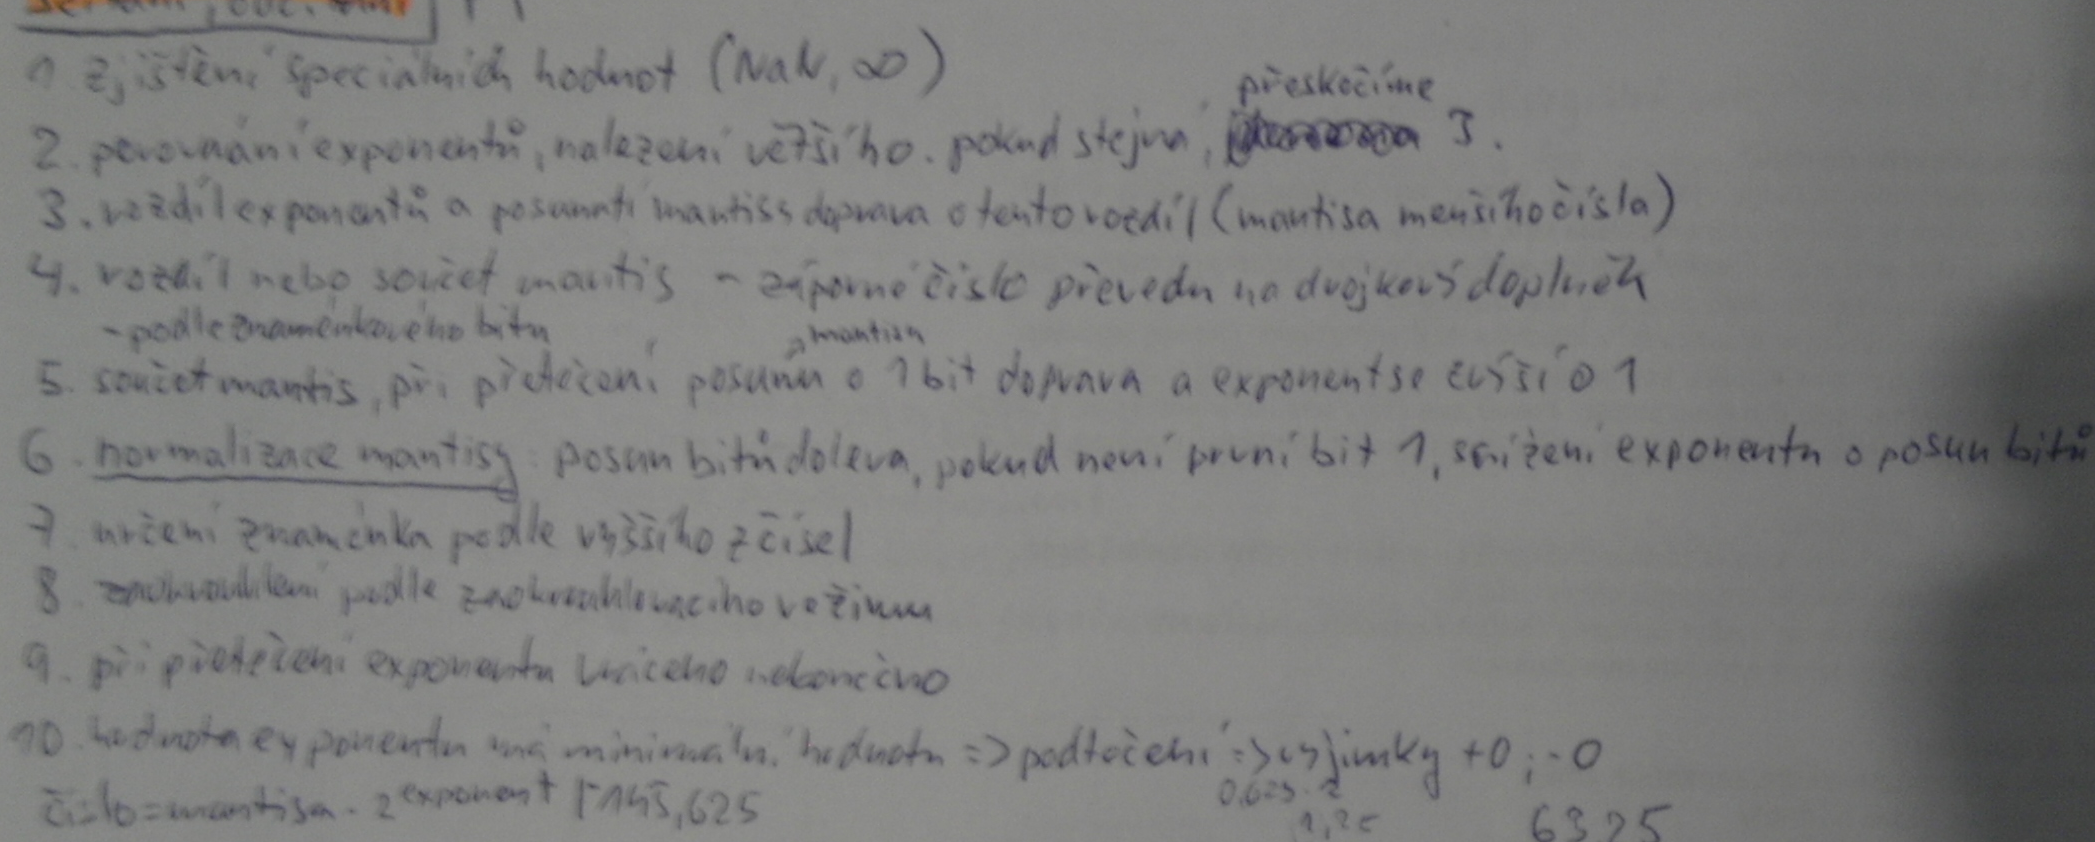 1. zjištění speciálních hodnot (NaN, ∞)
přeskočíme
2. porovnání exponentů, nalezení většího. pokud stejná, 3.
3. rozdíl exponentů a posunutí mantiss doprava o tento rozdíl (mantisa menšího čísla)
4. rozdíl nebo součet mantis - záporné číslo převedu na dvojkový doplněk
- podle znaménkového bitu
mantisu
5. součet mantis, při přetečení posunu o 1 bit doprava a exponent se zvýší o 1
6. normalizace mantisy: posun bitů doleva, pokud není první bit 1, snížení exponentu o posun bitů
7. určení znaménka podle vyššího z čísel
8. zaokrouhlení podle zaokrouhlovacího režimu
9. při přetečení exponentu vráceno nekonečno
10. hodnota exponentu má minimáln. hodnotu => podtečení => výjimky +0; -0
0,625.2
číslo = mantisa . 2^exponent 145,625
1,25
6325